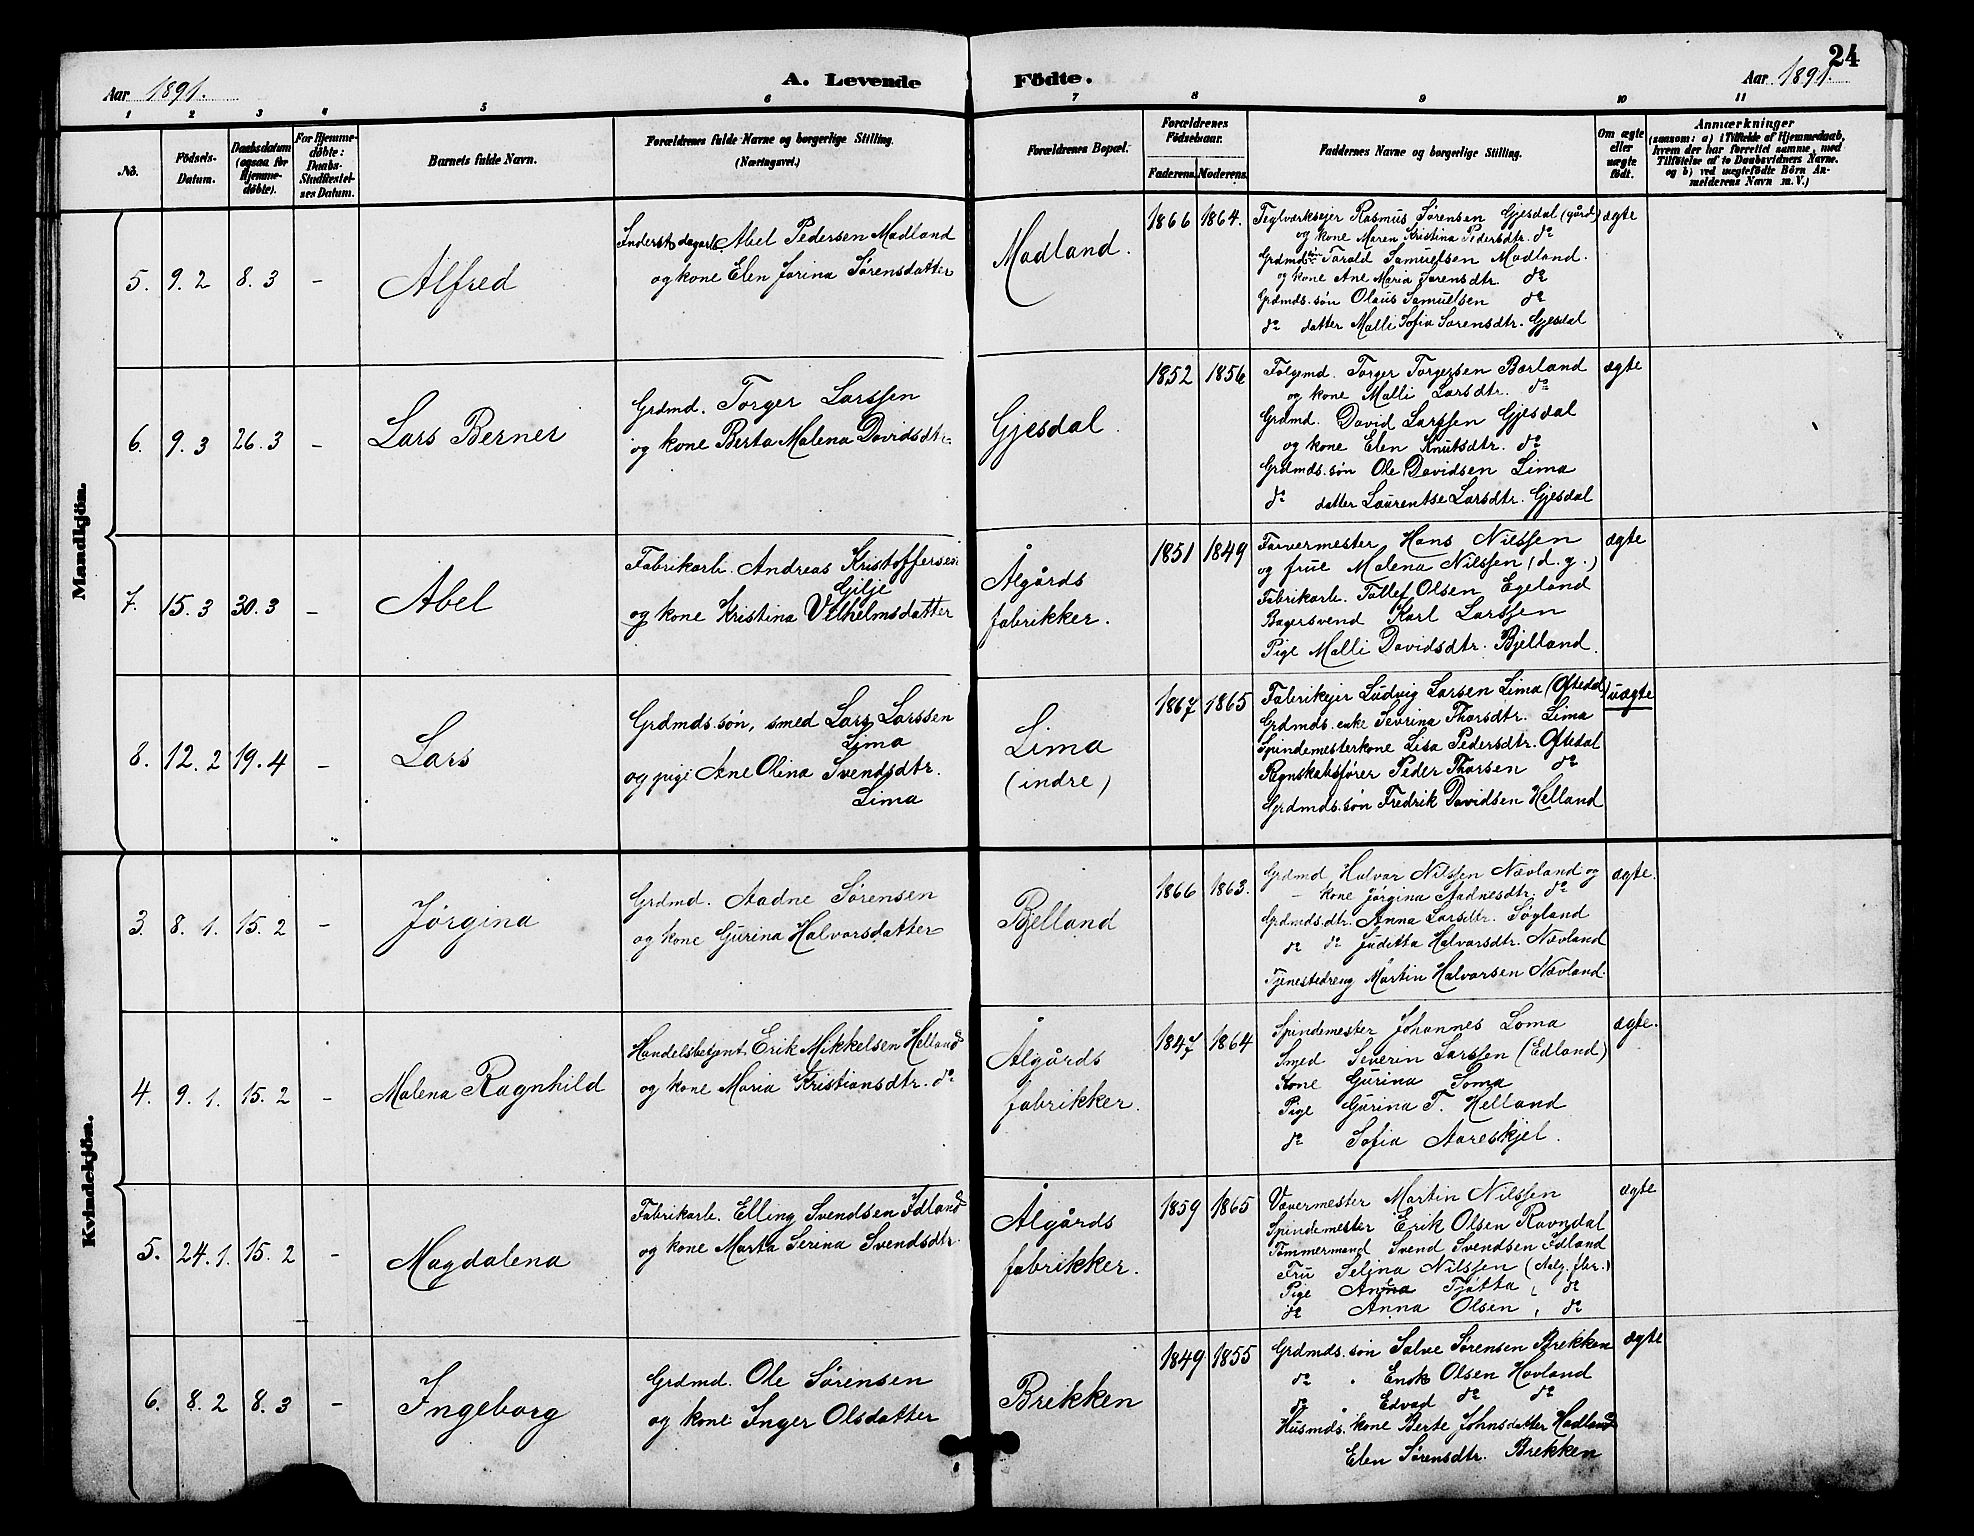 24
Aar 1891.
A. Levende Födte.
Aar 1891.
1 2 3 4 5 6 7 8 9 10 11
No.
Födsels-
Datum.
Daabsdatum
(ogsaa for
Hjemme-
døbte).
For Hjemme-
døbte:
Daabs-
Stadfæstel-
ses Datum.
Barnets fulde Navn.
Forældrenes fulde Navne og borgerlige Stilling.
(Næringsvei.)
Forældrenes Bopæl.
Forældrenes
Fødselsaar.
Faderens. Moderens.
Faddernes Navne og borgerlige Stilling.
Om ægte
eller
uægte
født.
Anmærkninger
(saasom: a) i Tilfælde af Hjemmedaab,
hvem der har forrettet samme, med
Tilføielse af to Daabsvidners Navne.
og b) ved uægtefødte Børn An-
melderens Navn m. V.)
Mandkjön.
5. 9. 2 8. 3 - Alfred
Inderst dagarb. Abel Pedersen Madland
og kone Elen Jorina Sørensdatter
Madland.
1866 1864.
Teglværksejer Rasmus Sørensen Gjesdal (gård)
og kone Maren Kristina Pedersdtr. do
Grdmd Tarald Samuelsen Madland.
og kone Ane Maria Sørensdtr. do
Grdmds.søn Olaus Samuelsen do
do datter Malli Sofia Sørensdtr. Gjesdal
ægte
6. 9. 3 26. 3 - Lars Berner
Grdmd. Torger Larssen
og kone Berta Malena Davidsdtr.
Gjesdal.
1852 1856
Folgemd. Torger Torgersen Børland
og kone Malli Larsdtr. do
Grdmd. David Larssen Gjesdal
og kone Elen Knutsdtr. do
Grdmds.søn Ole Davidsen Lima
do datter Laurentse Larsdtr. Gjesdal
ægte
7. 15. 3 30. 3 - Abel
Fabrikarb. Andreas Kristoffersen
Gilje
og kone Kristina Vilhelmsdatter
Ålgårds
fabrikker.
1851 1849
Farvermester Hans Nilssen
og frue Malena Nilssen (d. g.)
Fabrikarb. Tollef Olsen Egeland
Bagersvend Karl Larssen
Pige Malli Davidsdtr. Bjelland.
ægte
8. 12. 2 19. 4 - Lars
Grdmds.søn, smed Lars Larssen
Lima
og pige Ane Olina Svendsdtr.
Lima
Lima
(indre)
1867 1865
Fabrikejer Ludvig Larsen Lima (Oftedal)
Grdmds. enke Sevrina Thorsdtr. Lima
Spindemesterkone Lisa Pedersdtr. Oftedal
Regnskabsfører Peder Thorsen do
Grdmds.søn Fredrik Davidsen Helland
uægte
Kvindekjön.
3. 8. 1. 15. 2 - Jørgina
Grdmd. Aadne Sørensen
og kone Gurina Halvorsdatter
Bjelland
1866 1863.
Grdmd Halvor Nilssen Nævland og
- kone Jørgina Aadnesdtr. do
Grdmds.dtr. Anna Larsdtr. Søyland
do do Juditta Halvorsdtr. Nævland
Tjenestedreng Martin Halvorsen Nævland.
ægte.
4. 9. 1. 15. 2 - Malena Ragnhild
Handelsbetjent Erik Mikkelsen Helland
og kone Maria Kristiansdtr. do
Ålgårds
fabrikker.
1847 1864
Spindemester Johannes Loma
Smed Severin Larssen (Edland)
Kone Gurina Soma
Pige Gurina T. Helland
do Sofia Aareskjel.
ægte.
5. 24. 1. 15. 2 - Magdalena
Fabrikarb. Elling Svendsen Idland
og kone Marta Serina Svendsdtr.
Ålgårds
fabrikker.
1859 1865
Vævermester Martin Nilssen
Spindemester Erik Olsen Ravndal
Tømmermand Svend Svendsen Idland
Fru Selina Nilssen (Aalg. fbr.)
Pige Anna Tjøtta, do
do Anna Olsen, do
ægte
6. 8. 2 8. 3 - Ingeborg
Grdmd. Ole Sørensen
og kone Inger Olsdatter
Brekken
1849 1855
Grdmds.søn Salve Sørensen Brekken
do Enok Olsen Hovland
do Edvad do do
Husmds. kone Berte Johnsdatter Hadland
Elen Sørensdtr. Brekken
ægte